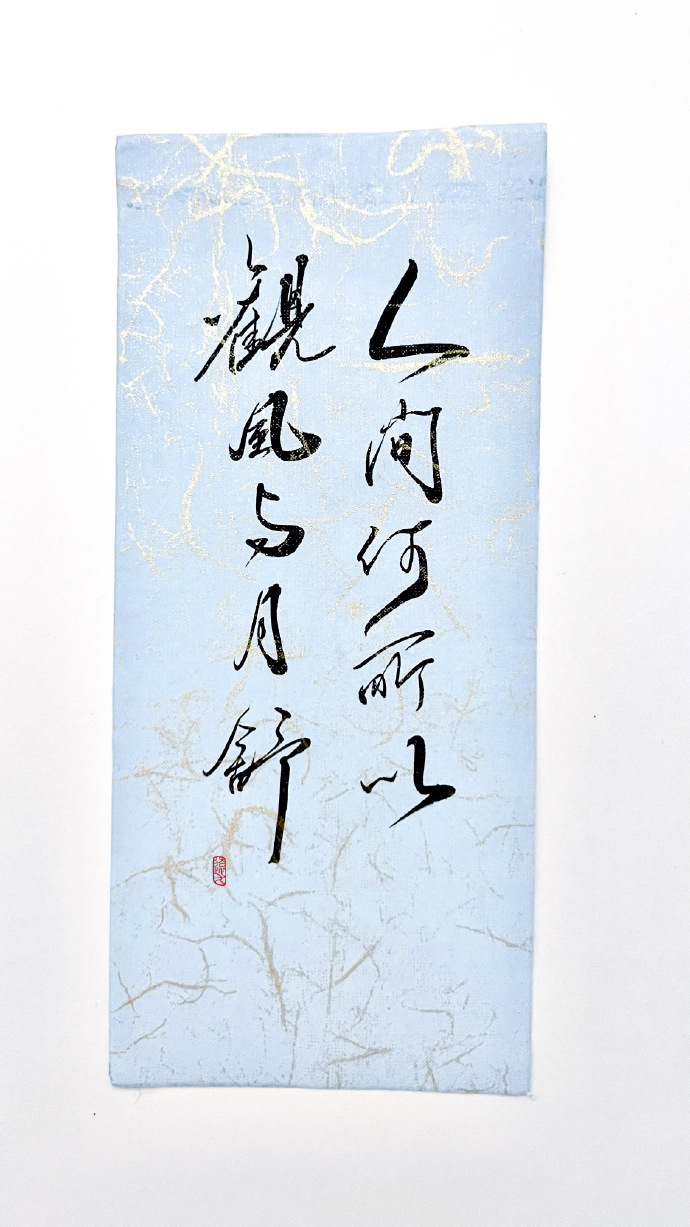 人间何所以
觀風与月舒